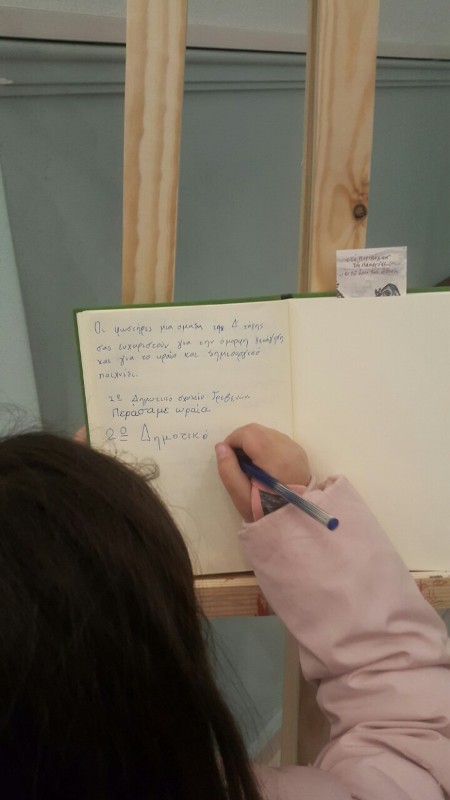 Οι φωστήρες μια ομάδα της Δ τάξης
σας ευχαριστούν για την όμορφη ξενάγηση
και για το ωραίο και δημιουργικό
παιχνίδι.
2ο Δημοτικό σχολείο Γρεβενών
Περάσαμε ωραία
2ο Δημοτικό